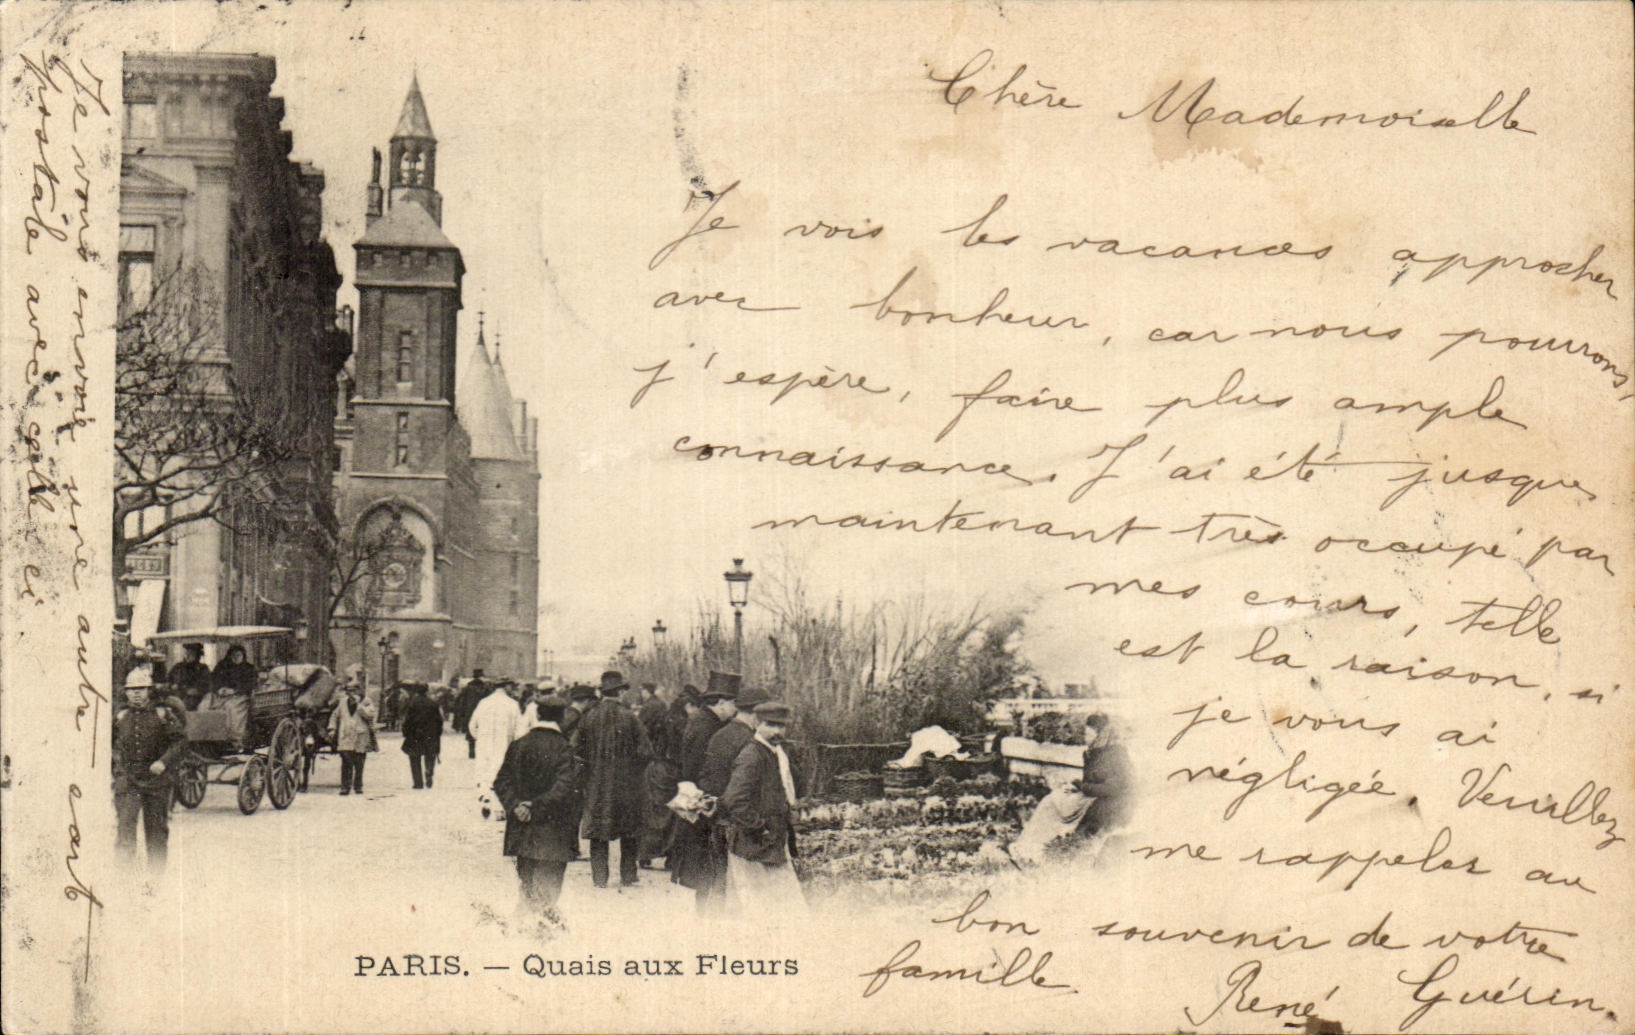 Chère Mademoiselle
Je vois les vacances approcher
avec bonheur, car nous pourrons,
j'espère, faire plus ample
connaissance. J'ai été jusque
maintenant très occupé par
mes cours, telle
est la raison, si
je vous ai
négligée. Veuillez
me rappeler au
bon souvenir de votre
famille.
René Guérin.
Je vous envoie une autre cart
postale avec celle ci
PARIS. — Quais aux Fleurs